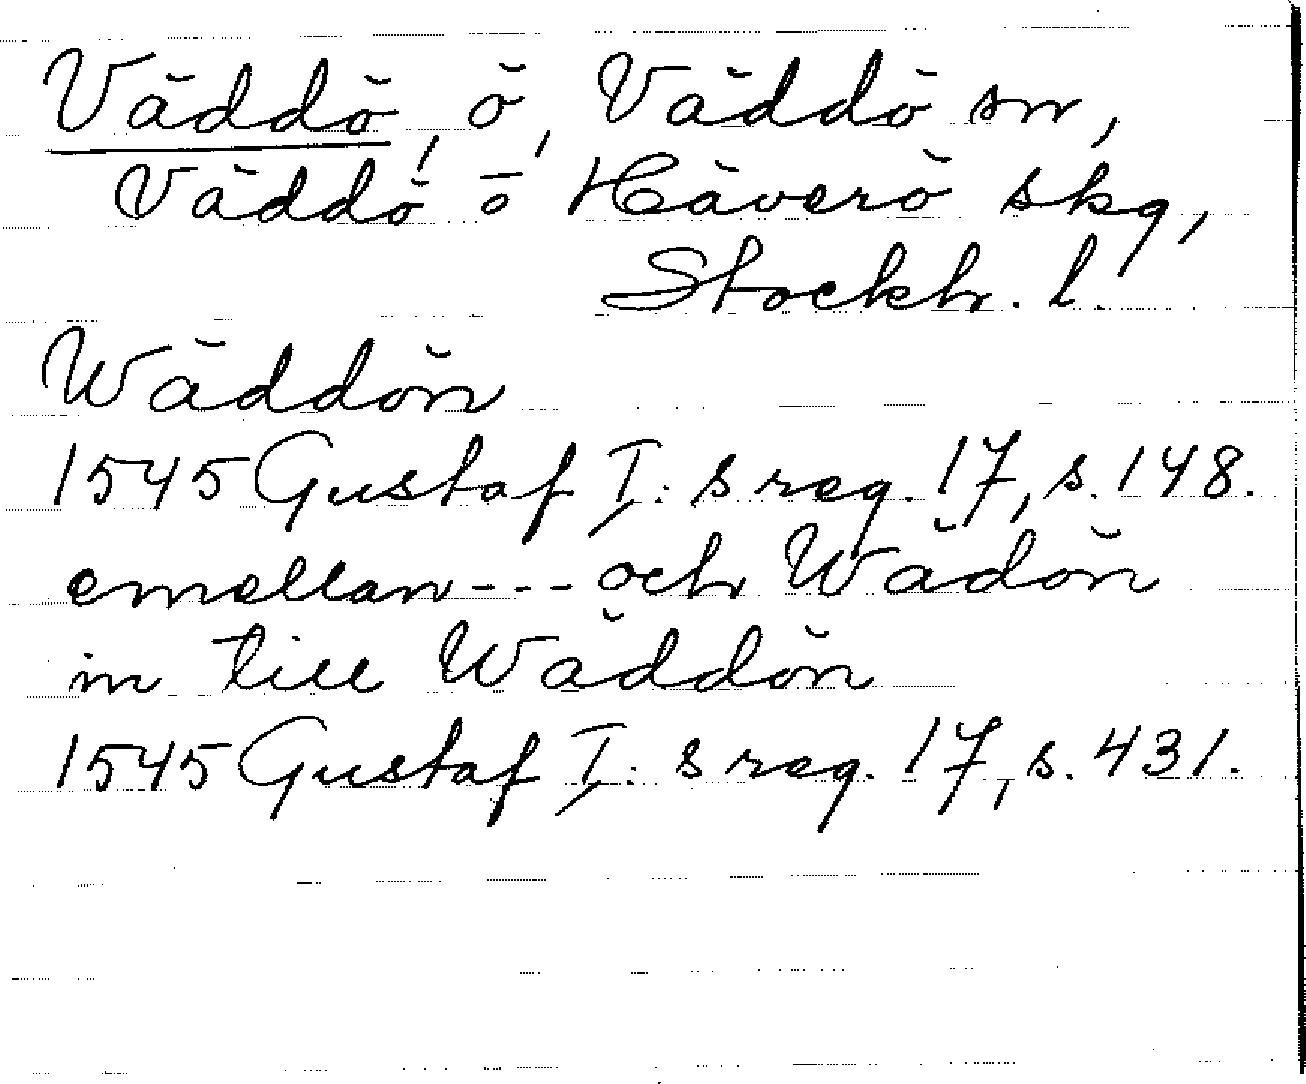 Väddö, ö, Väddö sn,
Väddö o Häverö skg,
Stockh. l.
Wäddön
1545 Gustaf I: s reg. 17, s. 148.
emellan --- och Wädön
in till Wäddön
1545 Gustaf I: s reg. 17, s. 431.